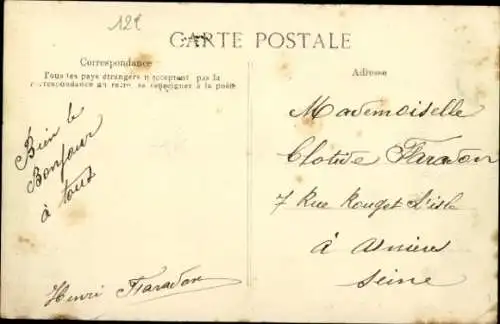 12t
CARTE POSTALE
Correspondance
Tous les pays étrangers n'acceptent pas la
correspondance au recto, se renseigner à la poste
Adresse
Bien le
Bonjour
à tous
Henri Faradon
Mademoiselle
Clotide Faradon
7 Rue Rouget L'isle
à Asnières
Seine